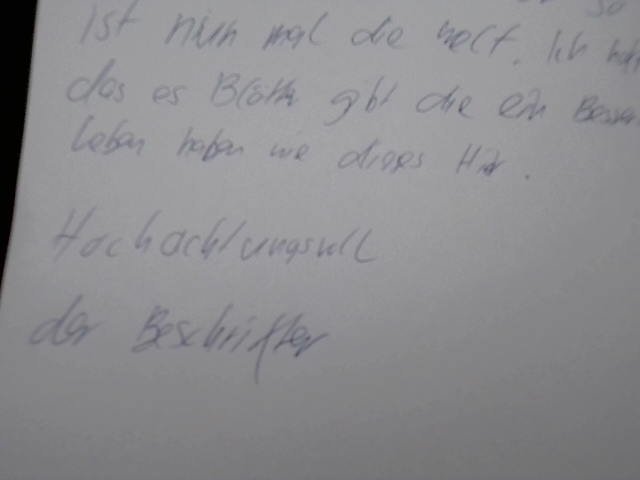 so
ist nun mal die welt. Ich
das es Blätter gibt die ein Besseres
leben haben wie dieses Hir.
Hochachtungsvoll
der Beschrifter